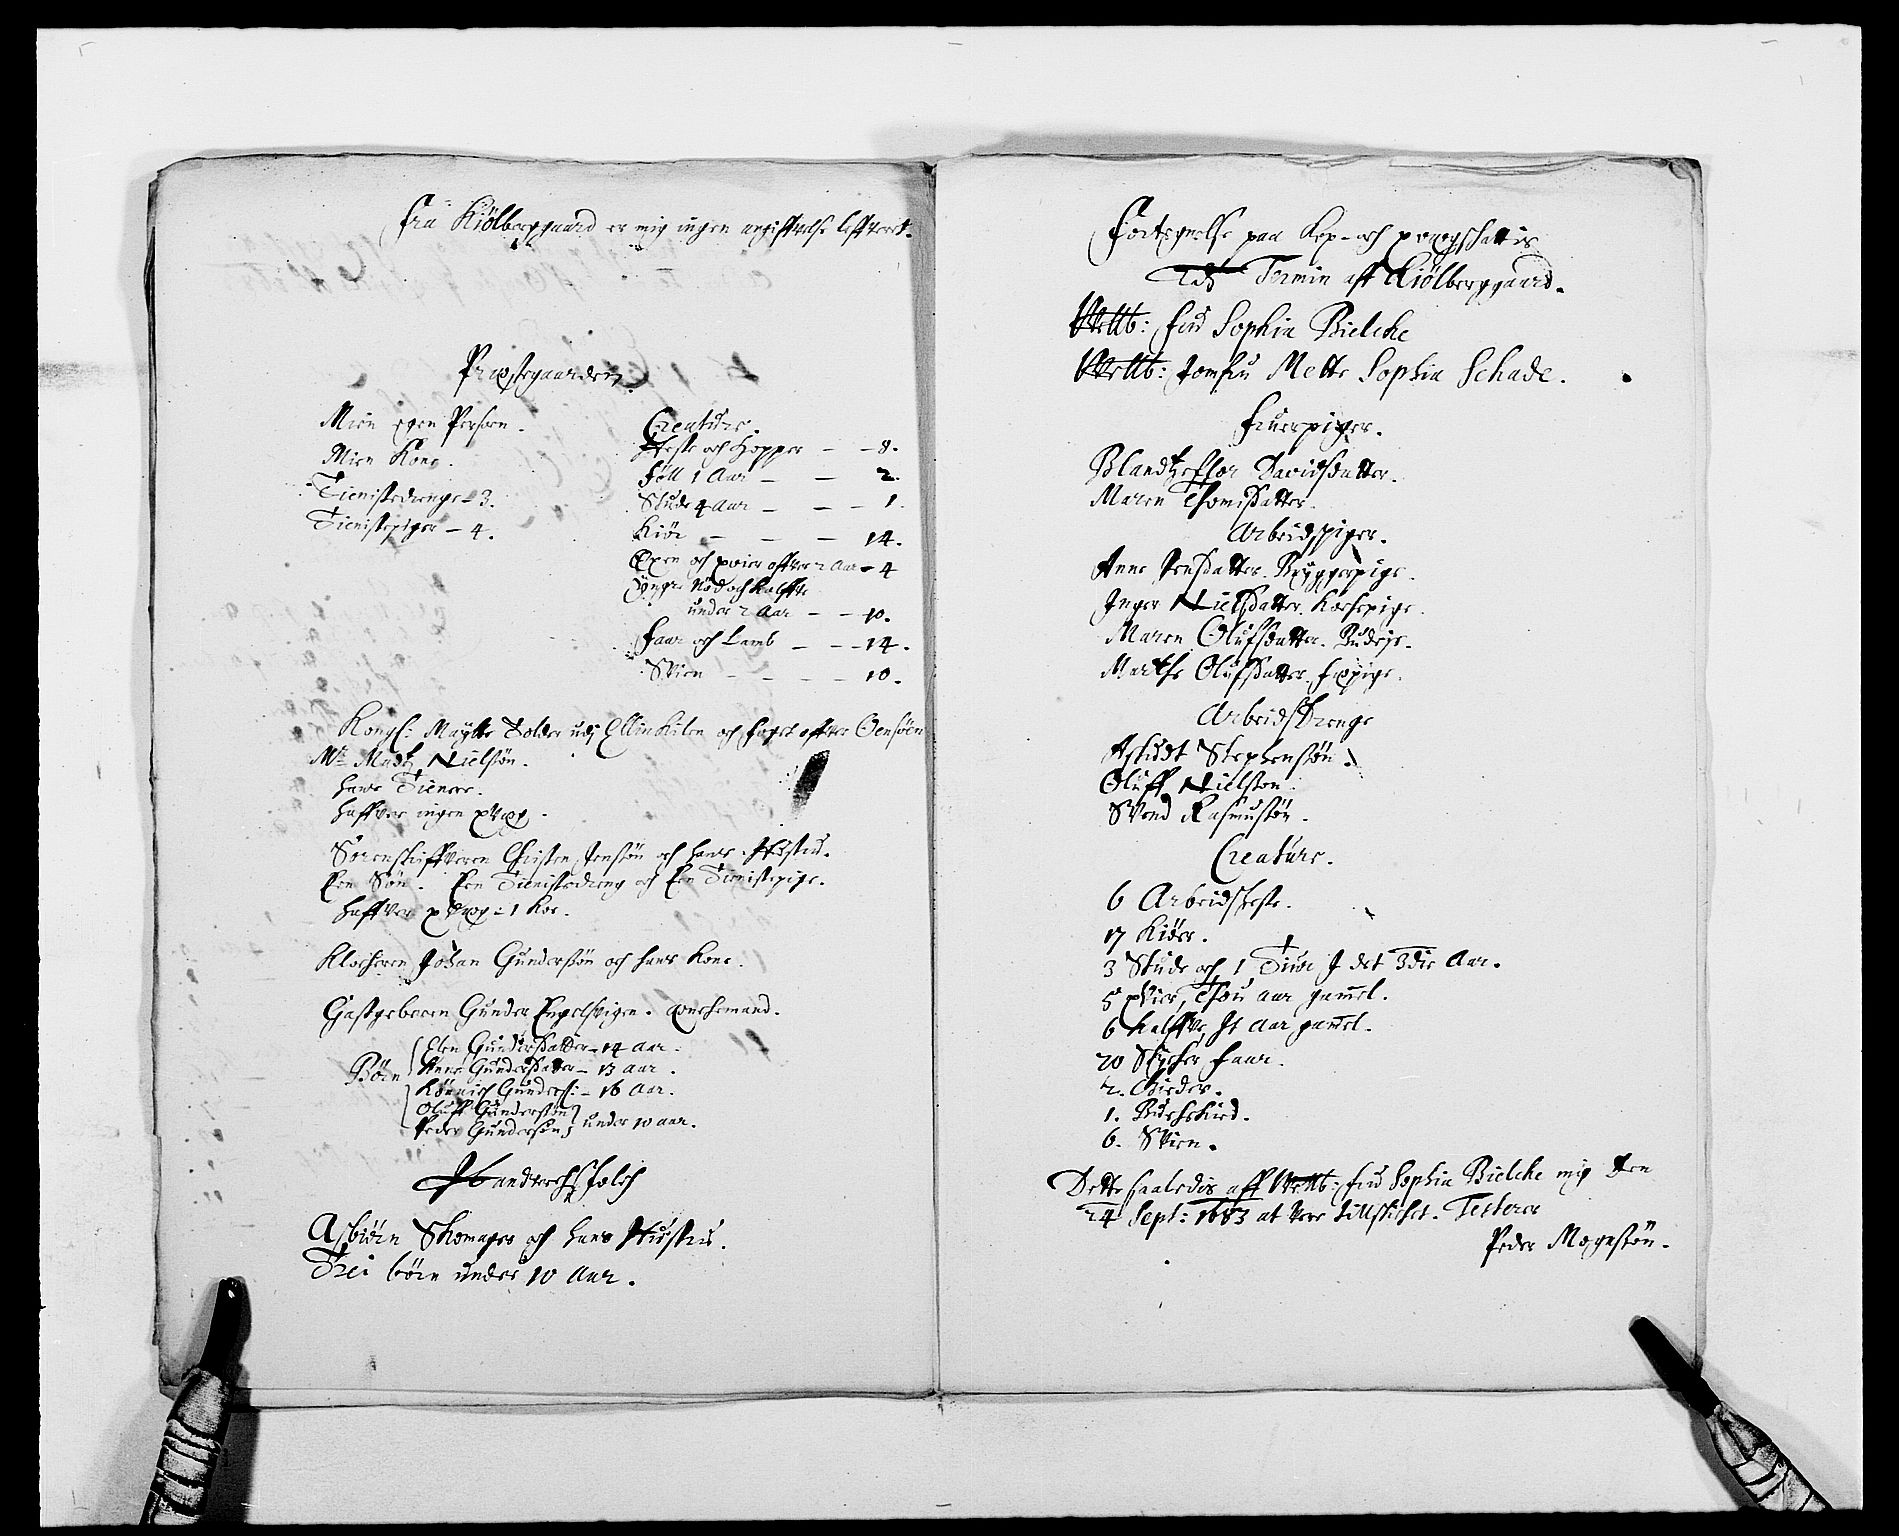 Fra Kiölberggaard er mig ingen angiffvelse leffveret.
Præstegaarden
Mien egen Person.
Mien Kone.
Tienistedrenge - 3.
Tienistepiger - 4.
Creature.
Heste och Hopper - - 8.
Föll 1 Aar - - 2.
Stude 4 Aar - - - 1.
Kiör - - - 14.
Öxen och qvier offver 2 Aar - 4
Yngre Nöd och Kalffve
under 2 Aar - - 10.
Faar och Lamb - - - 14.
Sviin - - - - 10.
Kongl: Maÿtts Tolder udj Ellinkilen och
Mr. Madtz Nielsön.
hans Tienere.
haffver ingen qvæg.
Sorenskriffveren Christen Jensön och hans Hustru.
Een Sön. Een Tienistedreng och Een Tienistepige.
haffver qvæg: 1 Koe.
Klocheren Johan Gundersön och hans Kone.
Gastgeberen Gunder Engelsvigen.
Börn
Elen Gundersdatter - 14 aar.
Anne Gundersdatter - 13 aar.
Gunders: - 16 Aar.
Oluff Gundersön
Peder Gundersön } under 10 aar.
Handtverchsfolch
Asbiörn Skomager och hans Hustru.
Trei börn under 10 Aar.
Fortegnelse paa Kop- och qvægschattis
Termin aff Kiölberggaard.
Velb: Fru Sophia Bielche
Velb: Jomfru Mette Sophia Schade.
Fruerpiger.
Blandtzeflor Davidsdatter.
Maren Thomisdatter.
Arbeidspiger.
Anne Jensdatter. Bryggerpige.
Inger Nielsdatter. Kochepige.
Maren Olufsdatter. Budeje.
Marthe Olufsdatter. Fæpige.
Arbeidsdrenge
Asludt Stephensön.
Oluff Nielson.
Svend Rasmusön.
Creature.
6 Arbeidsheste.
17 Kiöer.
3 Stude och 1 Tiur J det 3die Aar.
5 qvier, Thou aar gamel.
6 Kalffve Jt Aar gamel.
20 Stycher Faar.
2. Gieder.
1. Buchekied.
6. Sviin.
Dette saaledis aff Velb: Fru Sophia Bielche mig den
24 Sept: 1683 at vere tillskichet. Testerer
Peder Mogensön.